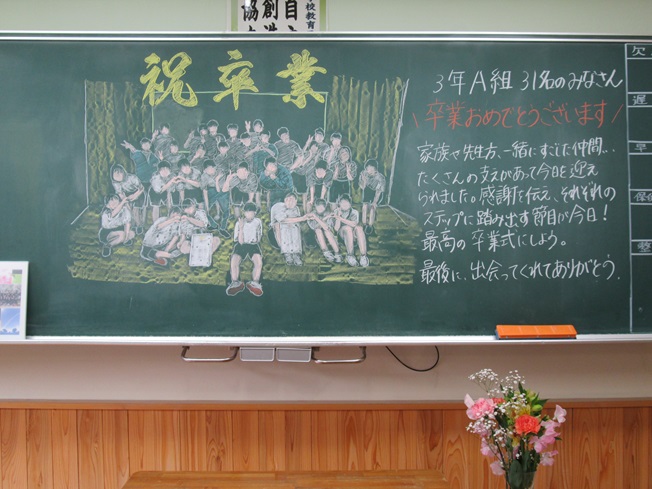 自
創
協
学校教育
祝卒業
3年A組 31名のみなさん
\卒業おめでとうございます/
家族や先生方、一緒にすごした仲間…
たくさんの支えがあって今日を迎え
られました。感謝を伝え、それぞれの
ステップに踏み出す節目が今日!
最高の卒業式にしよう。
最後に、出会ってくれてありがとう.
欠
遅
早
保